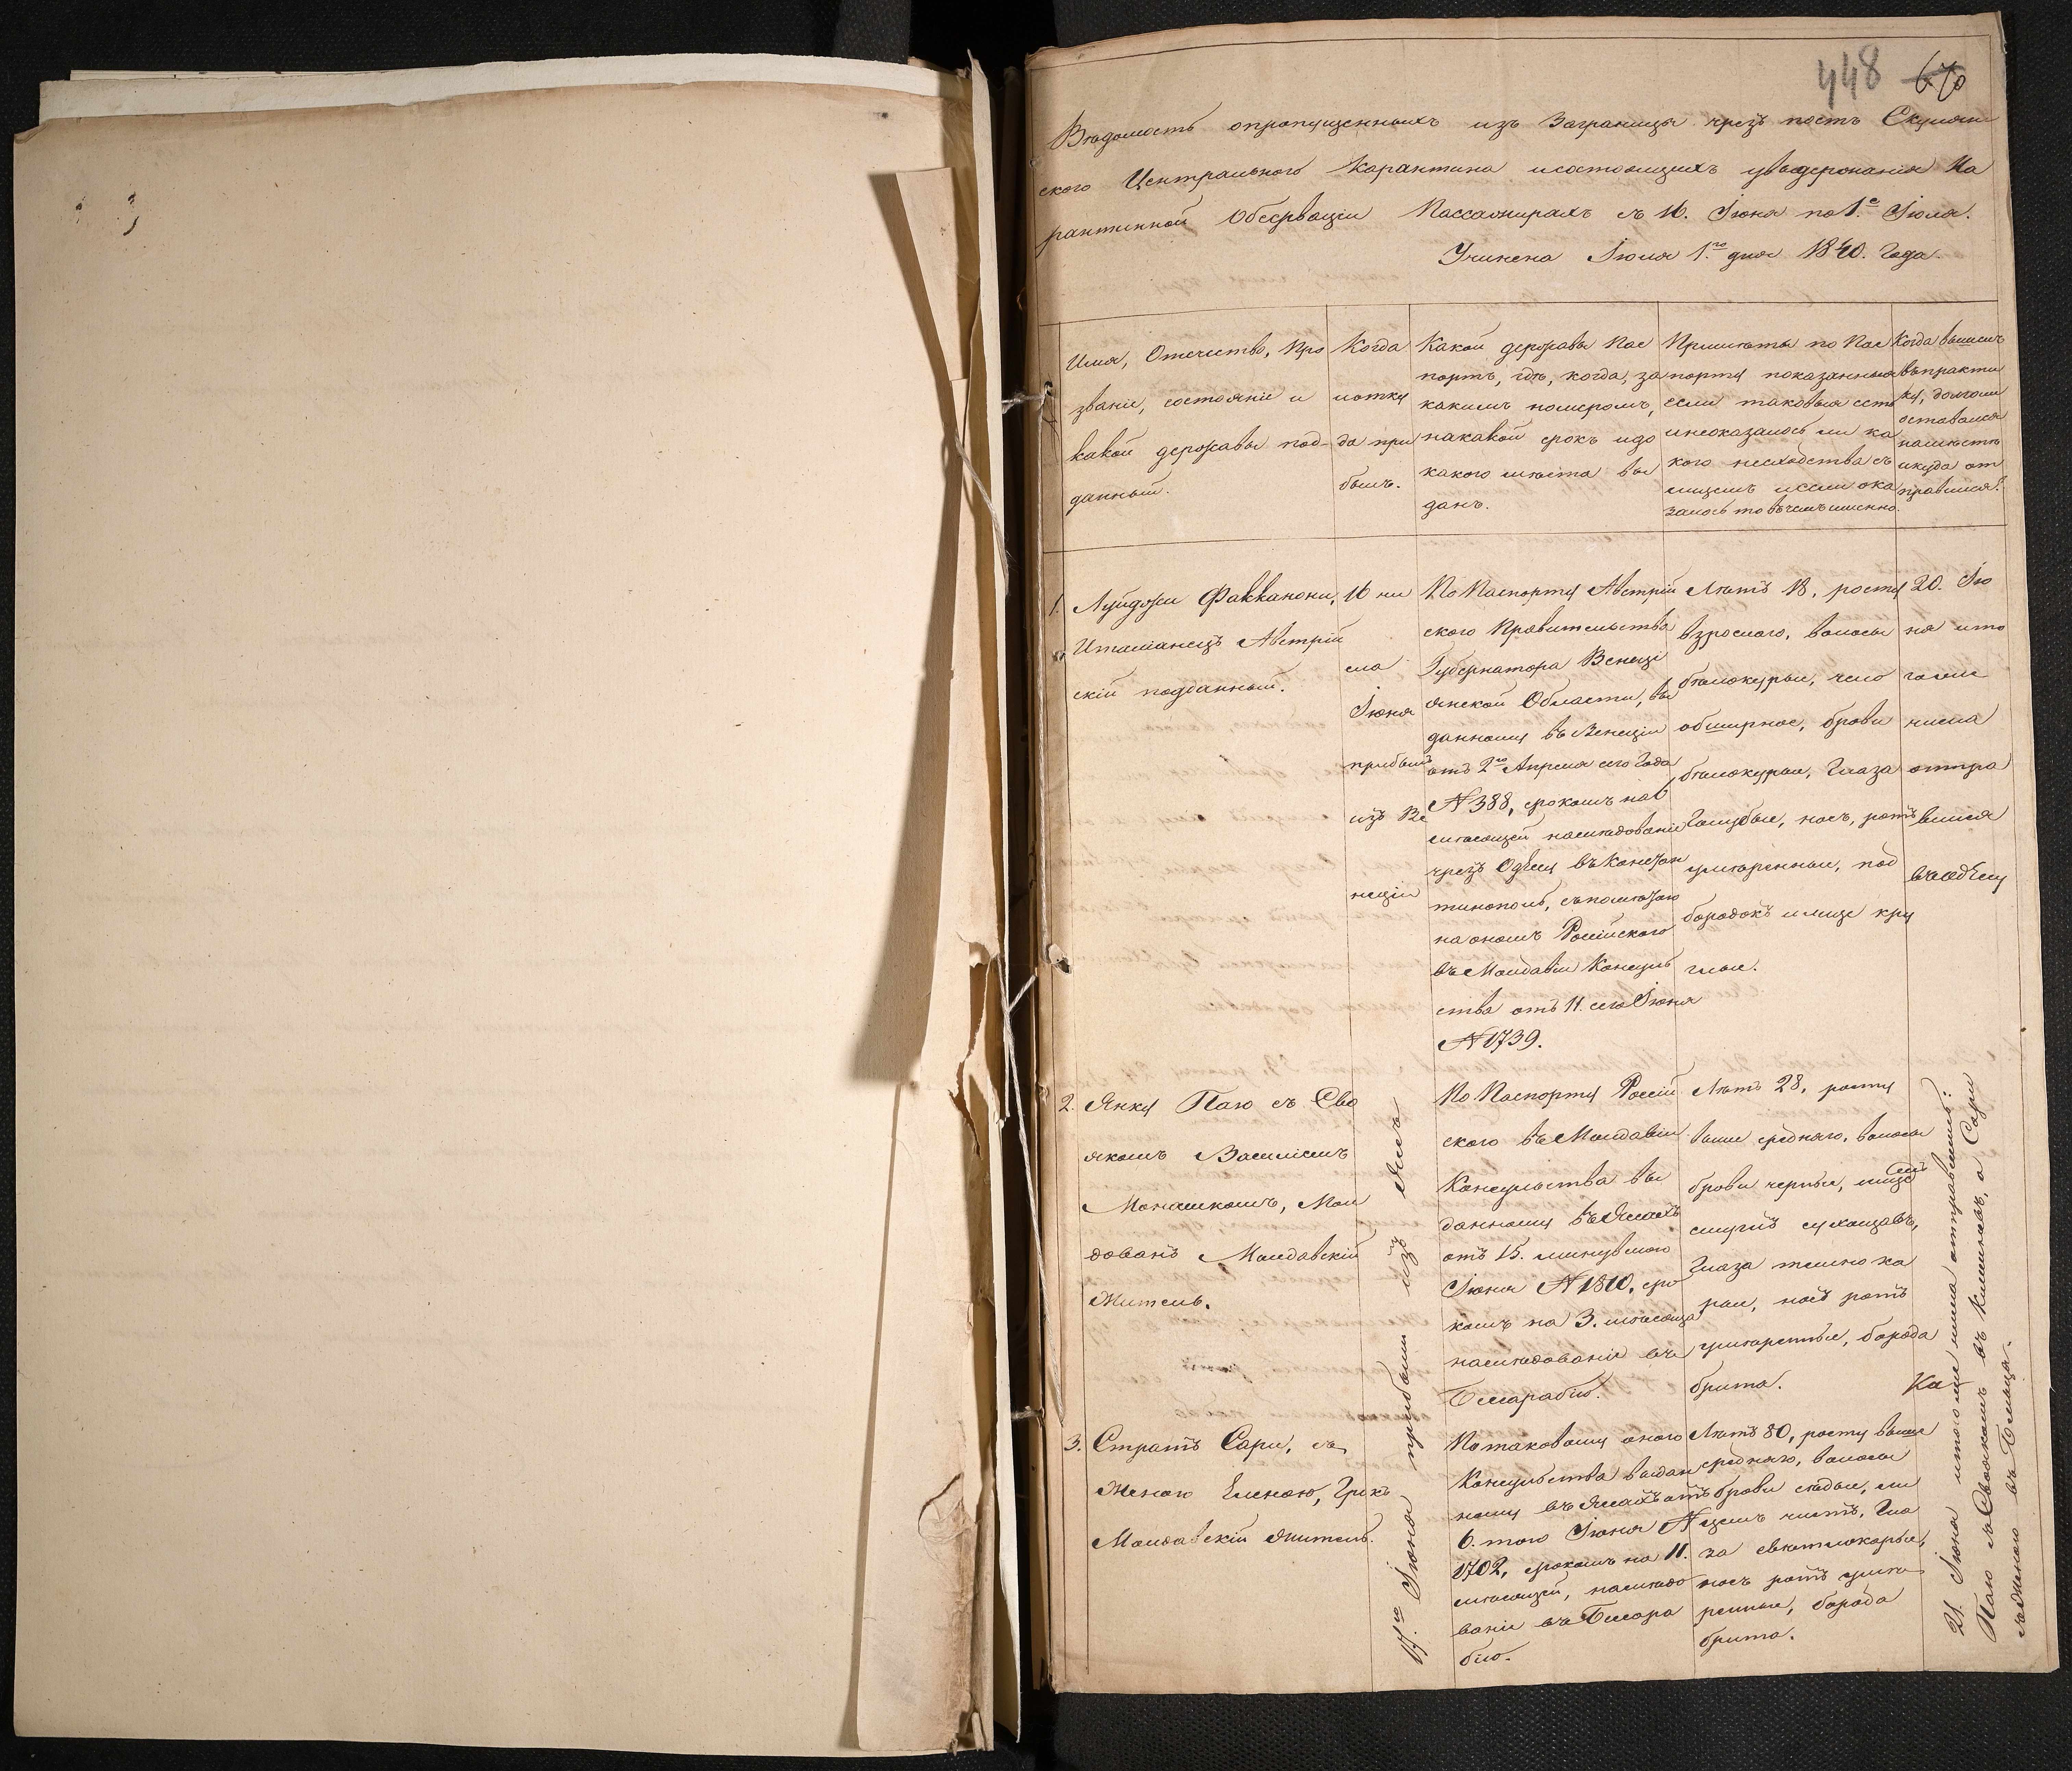 448 670
Вѣдомость опропущенныхъ изъ Заграницы чрезъ постъ Скулян
скаго Центральнаго Карантина исостоящихъ увыдержанія Ка
рантинной Обсерваціи Пассажирахъ съ 16. Іюня по 1.е Іюля.
Учинена Іюля 1.го дня 1840. Года.
Имя, Отечество, Про
званіе, состояніе и
какой державы под-
данный.
Когда
иотку
да при
былъ.
Какой державы Пас
портъ, гдѣ, когда, за
какимъ номеромъ,
накакой срокъ идо
какого мѣста вы
данъ.
Примѣты по Пас
порту показанныя
если таковыя есть
инеоказалось ли ка
кого несходства съ
лицемъ иесли ока
залось то въчемъ именно.
Когда вышелъ
въпракти
ку, долголи
оставался
намѣстѣ
икуда от
правился?
1. Луиджи Факканони,
Италіанецъ Австрій
скій подданный.
16 чи
сла
Іюня
прибылъ
изъ Ве
неціи
По Паспорту Австрій
скаго Правительства
Губернатора Венеці
янской Области, вы
данному въ Венеціи
отъ 2го Апреля сего Года
№ 388, срокомъ на 6
мѣсяцей наслѣдованіе
чрезъ Одессу въ Констан
тинополь, съпомѣтою
на ономъ Россійскаго
въ Молдавіи Консуль
ства отъ 11. сего Іюня
№ 1739.
Лѣтъ 18, росту
взрослаго, волосы
бѣлокурые, чело
обширное, брови
бѣлокурые, Глаза
Голубые, носъ, ротъ
умѣренные, под
бородокъ и лице кру
глые.
20. Ію
ня ито
гоже
числа
отпра
вился
въ Одессу
2. Янку Паю съ Сво
якомъ Василіемъ
Монашкомъ, Мол
дованъ Молдавскій
Житель.
17.го Іюня прибыли изъ Яссъ
По Паспорту Россій
скаго въ Молдавіи
Консульства вы
данному въ Яссахъ
отъ 15. минувшаго
Іюня № 1810, сро
комъ на 3. мѣсяца
наслѣдованіе въ
Бессарабію.
Лѣтъ 28, росту
выше средняго, волосы
брови черные, лицемъ
смуглъ сухощавъ,
Глаза темно ка
рые, носъ ротъ
умѣренные, борода
брита.
3. Стратъ Сари, съ
Женою Еленою, Грекъ
Молдавскій житель.
Потаковому оного
Консульства выдан
ному въ Яссахъ отъ
6. того Іюня №
1702, срокомъ на 11.
мѣсяцей, наслѣдо
ваніе въ Бессара
бію.
Лѣтъ 80, росту выше
средняго, волосы
брови сѣдые, ли
цемъ чистъ, Гла
за свѣтлокарые,
носъ ротъ умѣ
ренные, борода
брита.
21. Іюня итогоже числа отправились:
Паю съ Своякомъ въ Кишиневъ, а Сари
съ Женою въ Бельцы.
Ка